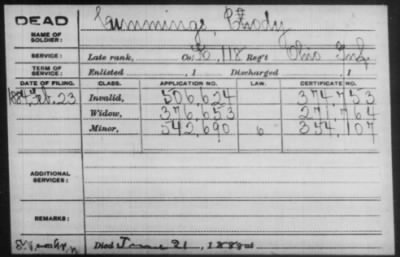 DEAD
Cummings,
NAME OF SOLDIER:
SERVICE: Late rank, Co. 118 Reg't Ohio Inf
TERM OF SERVICE: Enlisted , 1 Discharged , 1
DATE OF FILING. CLASS. APPLICATION NO. LAW. CERTIFICATE NO.
Feb. 23 Invalid, 506,624 374,753
Widow, 376,653 271,764
Minor, 542,690 6 354,107
ADDITIONAL SERVICES:
REMARKS:
Died June 21, 1888